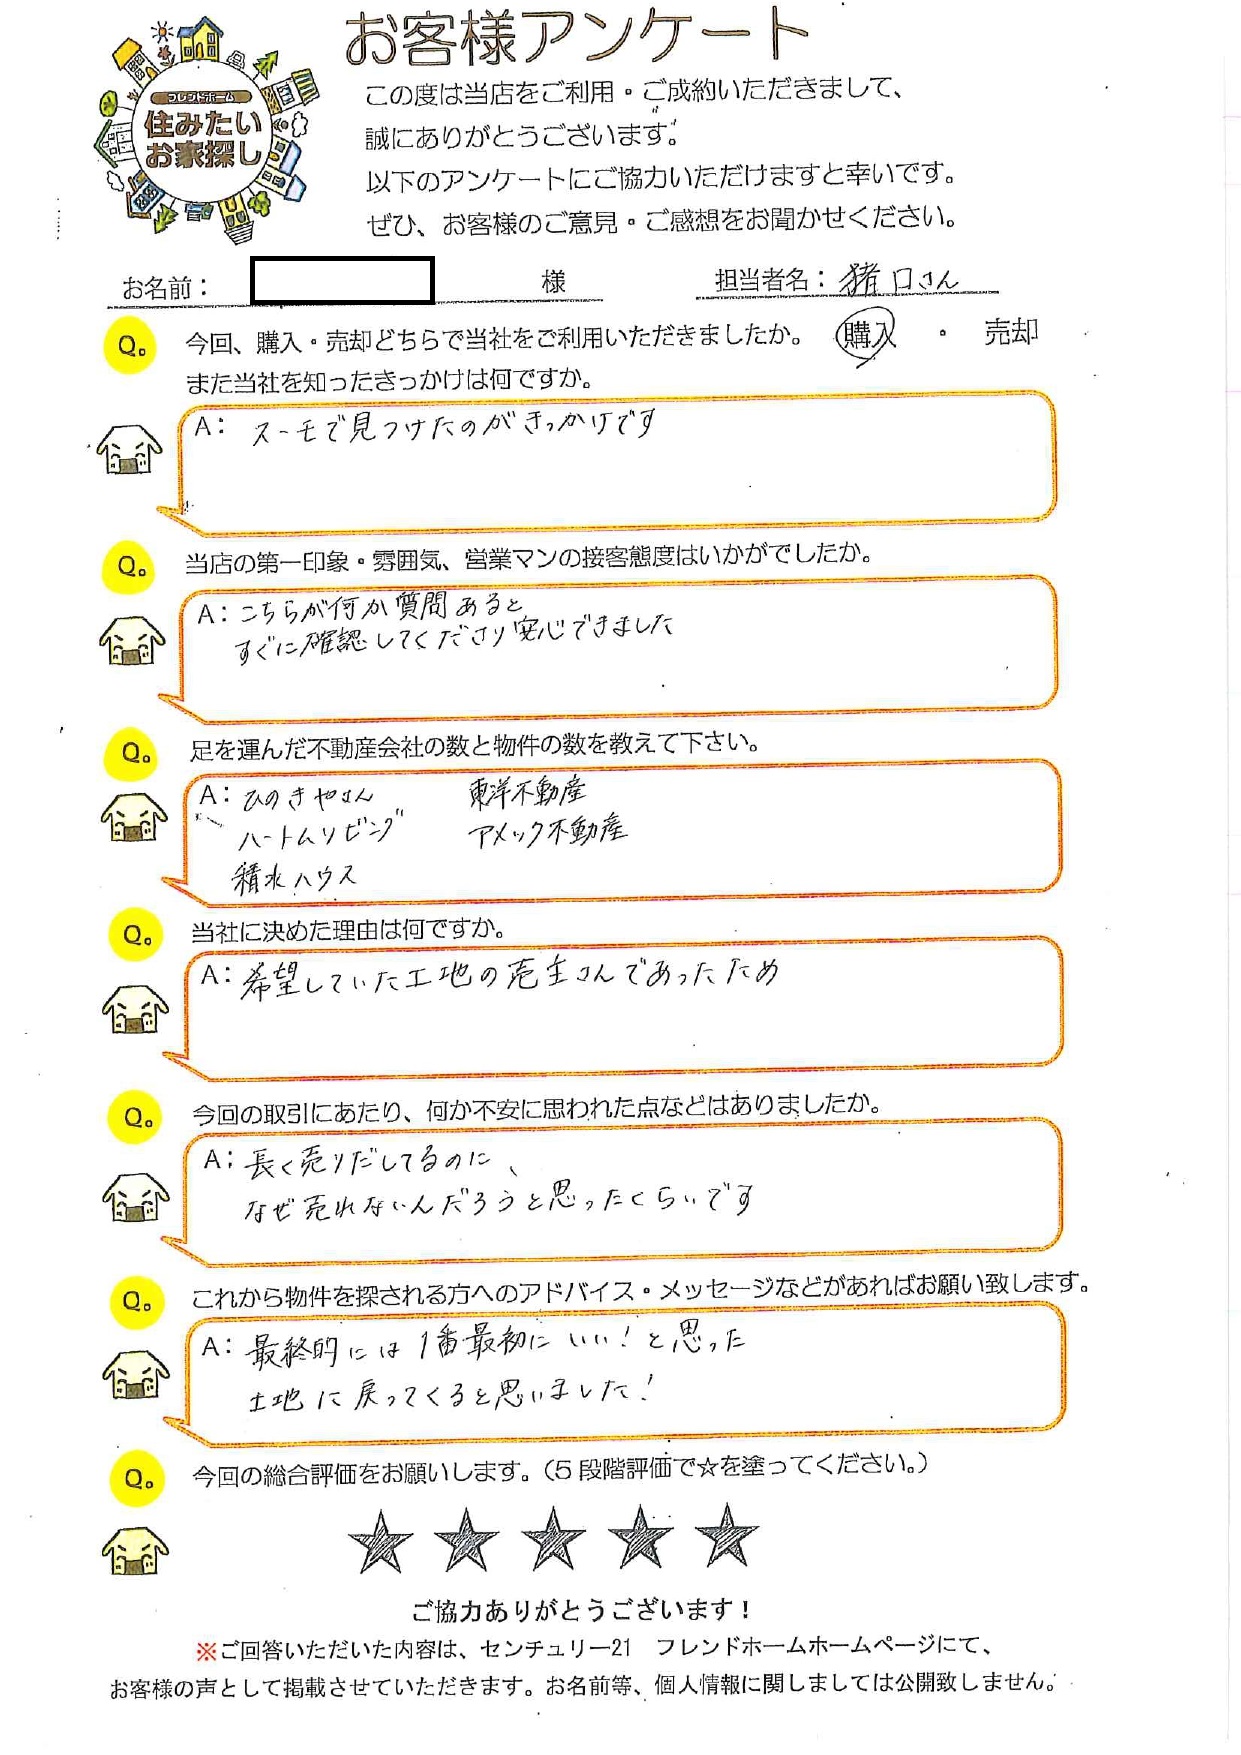 お客様アンケート
フレンドホーム
住みたい
お家探し
この度は当店をご利用・ご成約いただきまして、
誠にありがとうございます。
以下のアンケートにご協力いただけますと幸いです。
ぜひ、お客様のご意見・ご感想をお聞かせください。
お名前： 様 担当者名：猪口さん
Q。 今回、購入・売却どちらで当社をご利用いただきましたか。 購入 ・ 売却
また当社を知ったきっかけは何ですか。
A： スーモで見つけたのがきっかけです
Q。 当店の第一印象・雰囲気、営業マンの接客態度はいかがでしたか。
A：こちらが何か質問あると
すぐに確認してくださり安心できました
Q。 足を運んだ不動産会社の数と物件の数を教えて下さい。
A：ひのきやさん 東洋不動産
ハートムリビング アメック不動産
積水ハウス
Q。 当社に決めた理由は何ですか。
A：希望していた土地の売主さんであったため
Q。 今回の取引にあたり、何か不安に思われた点などはありましたか。
A：長く売りだしてるのに、
なぜ売れないんだろうと思ったくらいです
Q。 これから物件を探される方へのアドバイス・メッセージなどがあればお願い致します。
A：最終的には1番最初にいい！と思った
土地に戻ってくると思いました！
Q。 今回の総合評価をお願いします。（5段階評価で☆を塗ってください。）
★ ★ ★ ★ ★
ご協力ありがとうございます！
※ご回答いただいた内容は、センチュリー21 フレンドホームホームページにて、
お客様の声として掲載させていただきます。お名前等、個人情報に関しましては公開致しません。